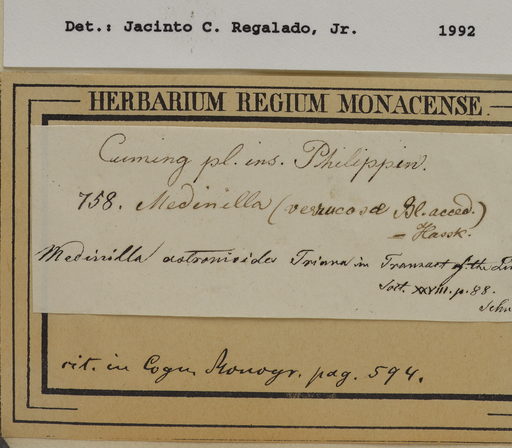 Det.: Jacinto C. Regalado, Jr. 1992
HERBARIUM REGIUM MONACENSE.
Cuming pl. ins. Philippin.
758. Medinilla (verrucosæ Bl. acced.)
– Hassk.
Medinilla astronioides Triana in Transact of the Lin
Soct. XXVIII. p. 88.
Schu
cit. in Cogn. Monogr. pag. 594.